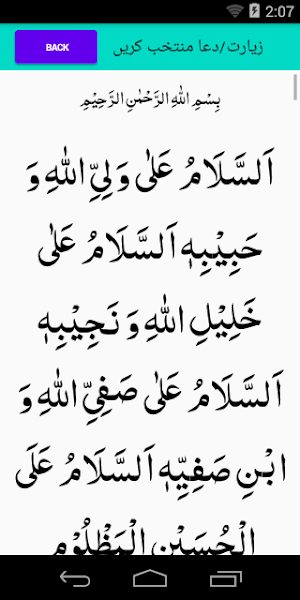 2:07
BACK
زیارت/دعا منتخب کریں
بِسْمِ اللهِ الرَّحْمٰنِ الرَّحِيْمِ
اَلسَّلَامُ عَلٰى وَلِيِّ اللهِ وَ
حَبِيْبِهٖ اَلسَّلَامُ عَلٰى
خَلِيْلِ اللهِ وَ نَجِيْبِهٖ
اَلسَّلَامُ عَلٰى صَفِيِّ اللهِ وَ
ابْنِ صَفِيِّهٖ اَلسَّلَامُ عَلَى
الْحُسَيْنِ الْمَظْلُوْمِ